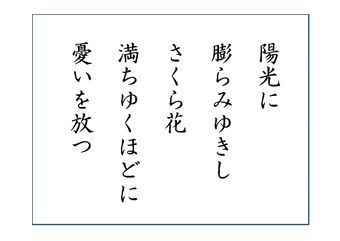 陽光に
膨らみゆきし
さくら花
満ちゆくほどに
憂いを放つ